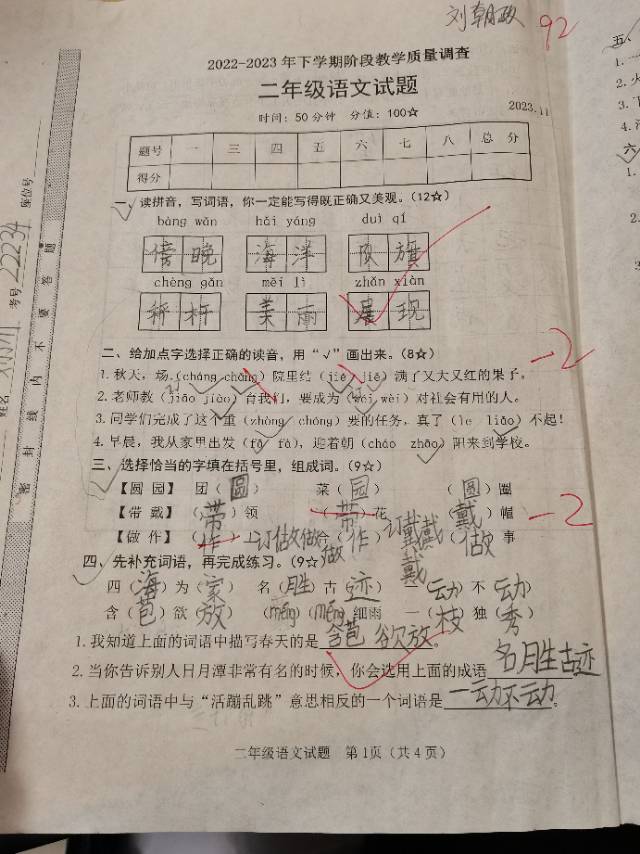 刘朝政
92
2022-2023年下学期阶段教学质量调查
二年级语文试题
时间：50分钟 分值：100☆
2023.11
题号 一 三 四 五 六 七 八 总 分
得分
一、读拼音，写词语，你一定能写得既正确又美观。（12☆）
bàng wǎn hǎi yáng duì qí
傍晚 海洋 队旗
chèng gǎn měi lì zhǎn xiàn
秤杆 美丽 展现
二、给加点字选择正确的读音，用“√”画出来。（8☆）
-2
1. 秋天，场（cháng chǎng）院里结（jiē jié）满了又大又红的果子。
2. 老师教（jiāo jiào）育我们，要成为（wéi wèi）对社会有用的人。
3. 同学们完成了这个重（zhòng chóng）要的任务，真了（le liǎo）不起！
4. 早晨，我从家里出发（fā fà），迎着朝（cháo zhāo）阳来到学校。
三、选择恰当的字填在括号里，组成词。（9☆）
【圆 园】 团（圆） 菜（园） （圆）圈
【带 戴】 （带）领 （带）花 （戴）帽
-2
【做 作】 （作）上 （作） （做）事
四、先补充词语，再完成练习。（9☆）
四（海）为（家） 名（胜）古（迹） 一（动）不（动）
含（苞）欲（放） （méng）（méng）细雨 一（枝）独（秀）
1. 我知道上面的词语中描写春天的是含苞欲放。
2. 当你告诉别人日月潭非常有名的时候，你会选用上面的成语名胜古迹
3. 上面的词语中与“活蹦乱跳”意思相反的一个词语是一动不动。
二年级语文试题 第1页（共4页）
密 封 线 内 不 要 答 题
姓名
考号 22234
座位号
五、
1.
2. 火
3.
4.
六、
1.
2.
3.